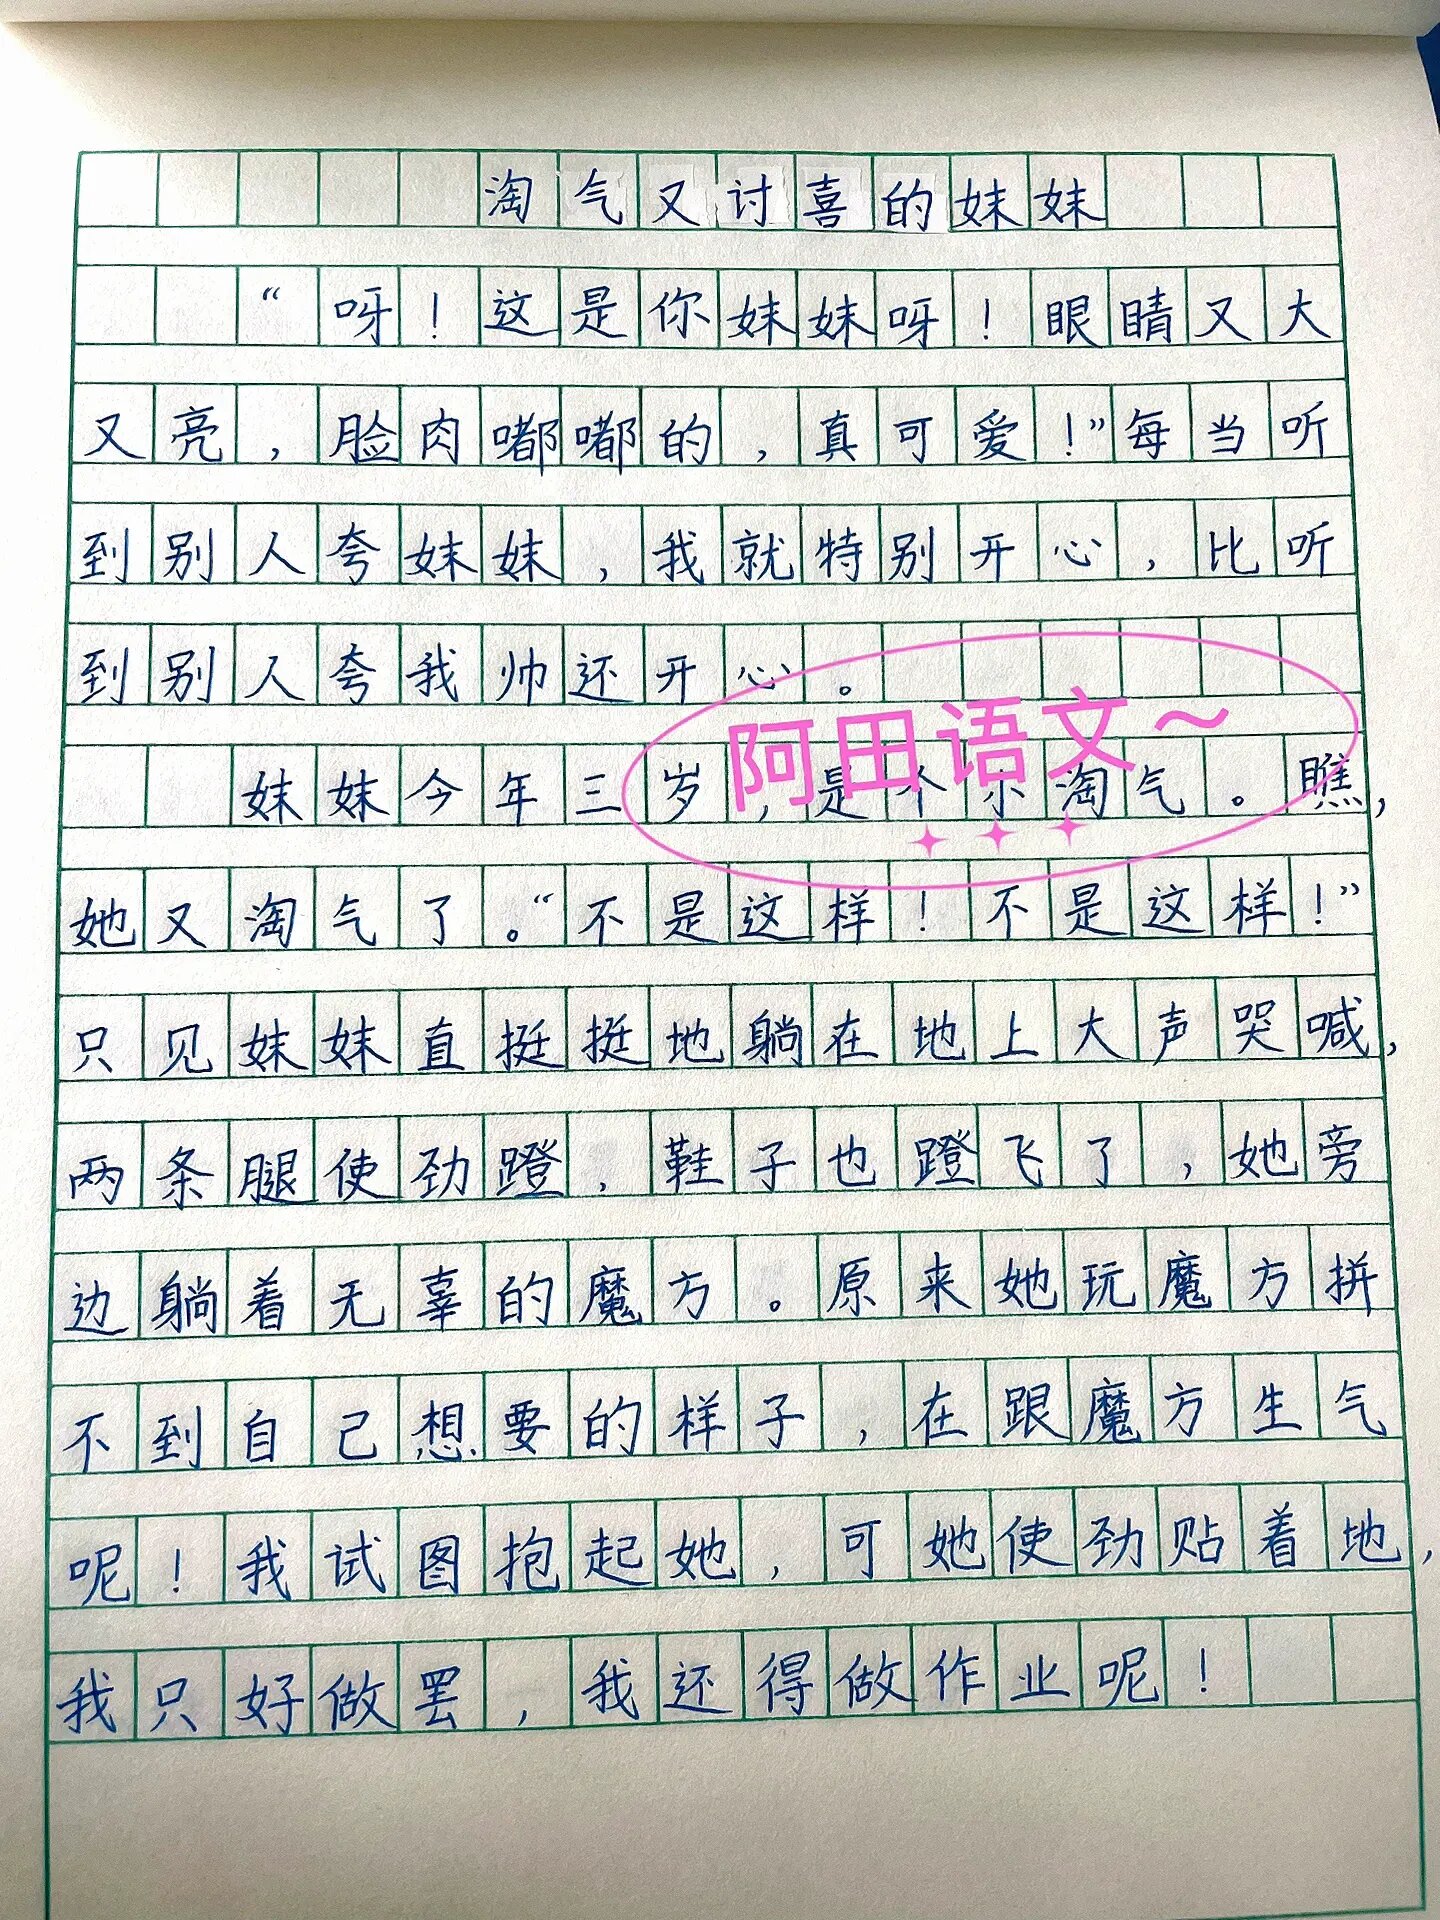 淘气又讨喜的妹妹
“呀！这是你妹妹呀！眼睛又大
又亮，脸肉嘟嘟的，真可爱！”每当听
到别人夸妹妹，我就特别开心，比听
到别人夸我帅还开心。
阿田语文～
妹妹今年三岁，是个小淘气。瞧，
她又淘气了。“不是这样！不是这样！”
只见妹妹直挺挺地躺在地上大声哭喊，
两条腿使劲蹬，鞋子也蹬飞了，她旁
边躺着无辜的魔方。原来她玩魔方拼
不到自己想要的样子，在跟魔方生气
呢！我试图抱起她，可她使劲贴着地，
我只好做罢，我还得做作业呢！